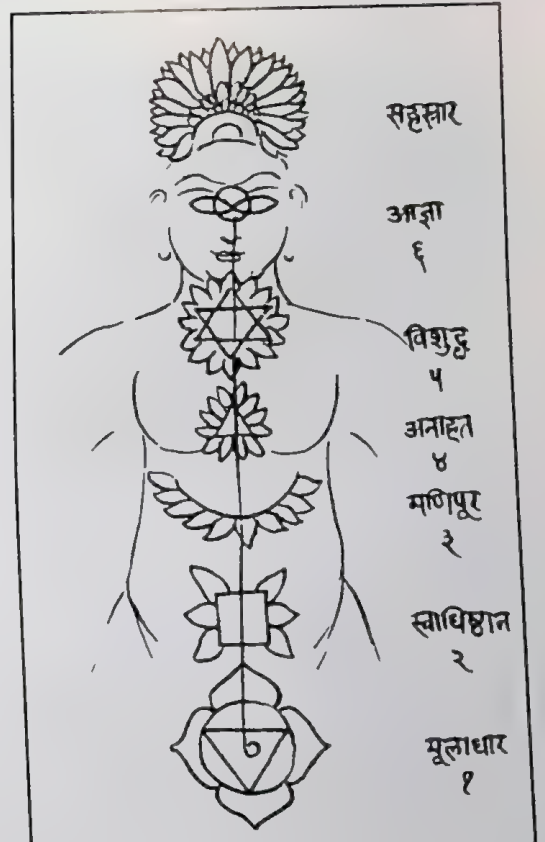 सहस्रार
आज्ञा
६
विशुद्ध
५
अनाहत
४
मणिपूर
३
स्वाधिष्ठान
२
मूलाधार
१